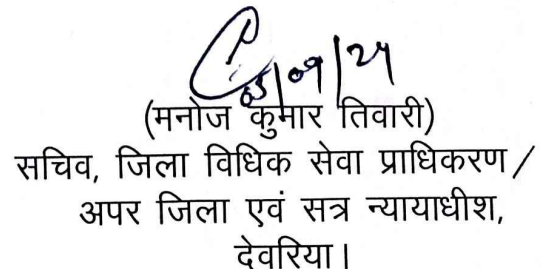 05/09/24
(मनोज कुमार तिवारी)
सचिव, जिला विधिक सेवा प्राधिकरण/
अपर जिला एवं सत्र न्यायाधीश,
देवरिया।